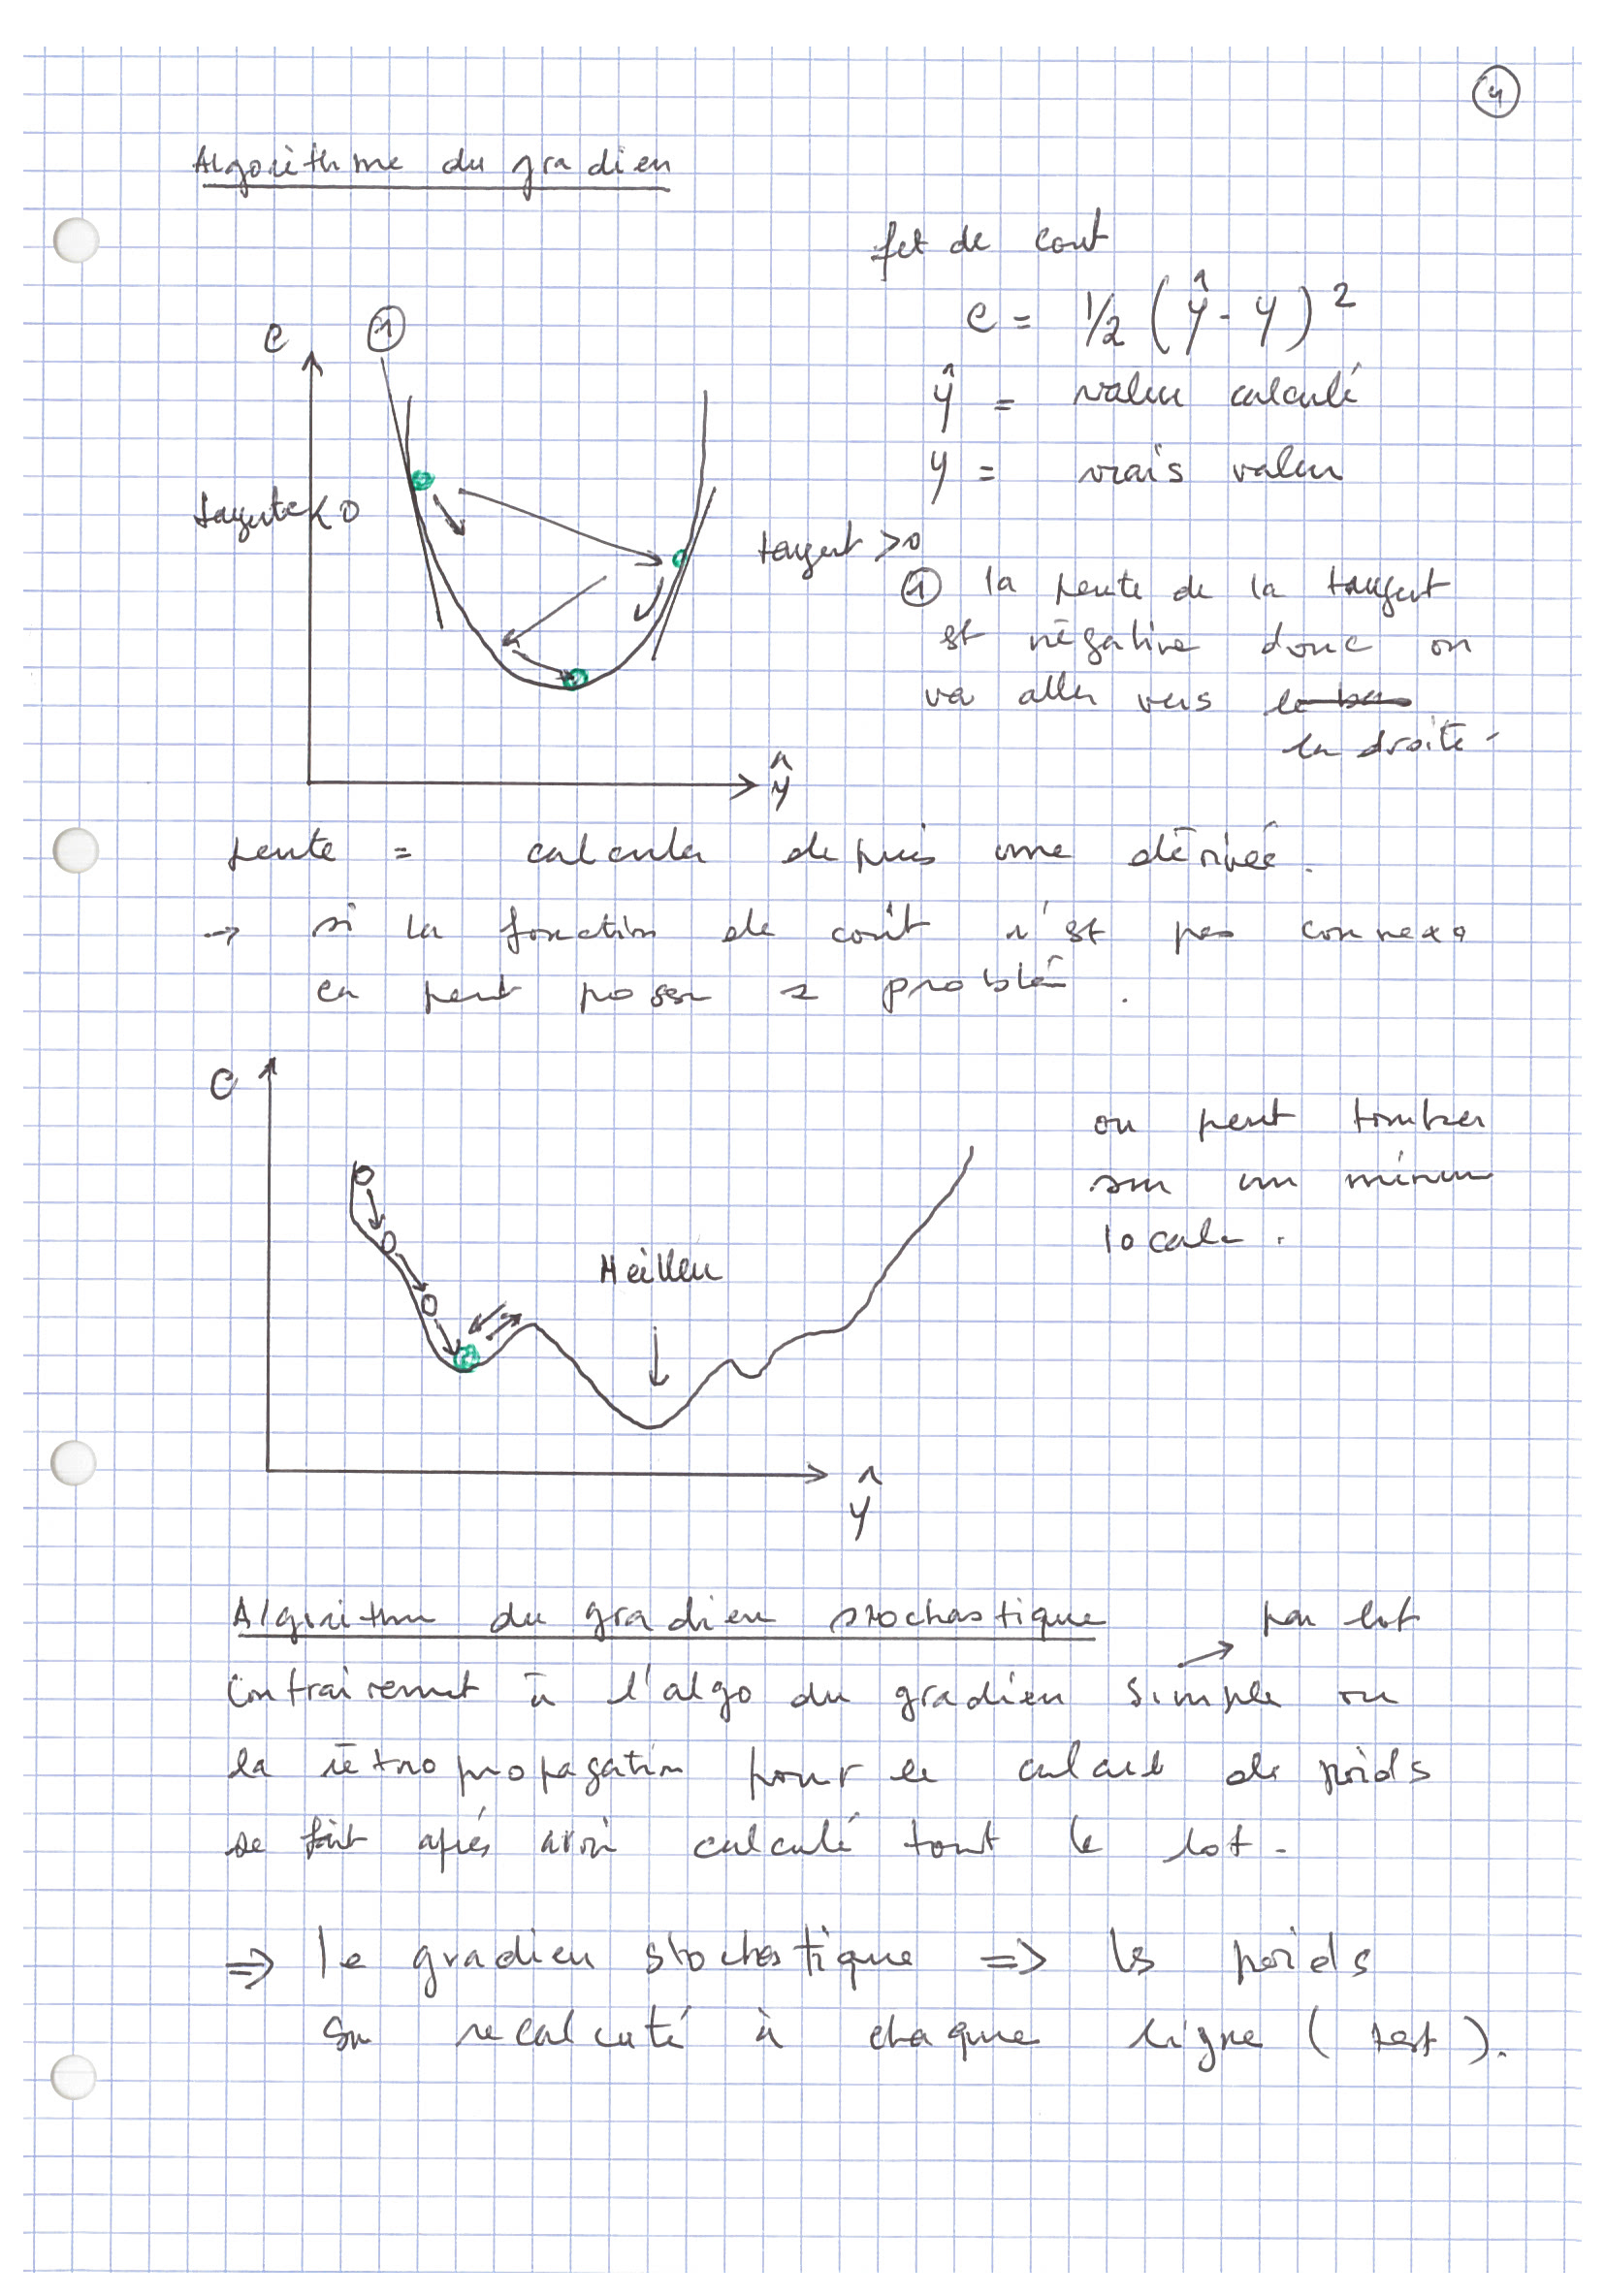 4
Algorithme du gradien
fct de cout
C = 1/2 (ŷ - y)²
ŷ = valeu calculé
y = vrais valeu
C
1
tangente < 0
tangent > 0
① la pente de la tangent
est négative donc on
va aller vers le bas
la droite.
ŷ
pente = calculer depuis une dérivée.
→ si la fonction de coût n'est pas connexe
ca peut posser problé .
C
on peut tomber
sur un minim
locale .
Meilleu
ŷ
Algorithm du gradien stochastique
par lot
Contrairemet à l'algo du gradien simple ou
la rétropropagation pour le calcul de poids
se fait après avoir calculé tout le lot.
⇒ le gradien stochastique ⇒ les poids
sn recalculé à chaque ligne ( test ).